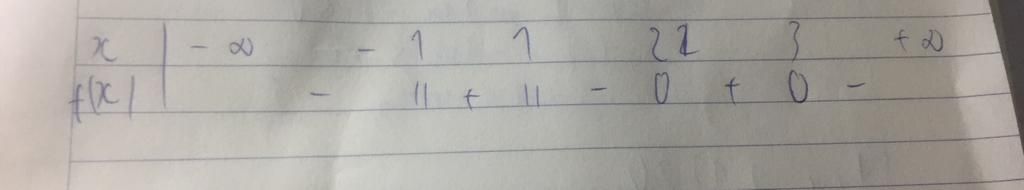 x | -∞ -1 1 2 3 +∞
f(x) | - || + || - 0 + 0 -